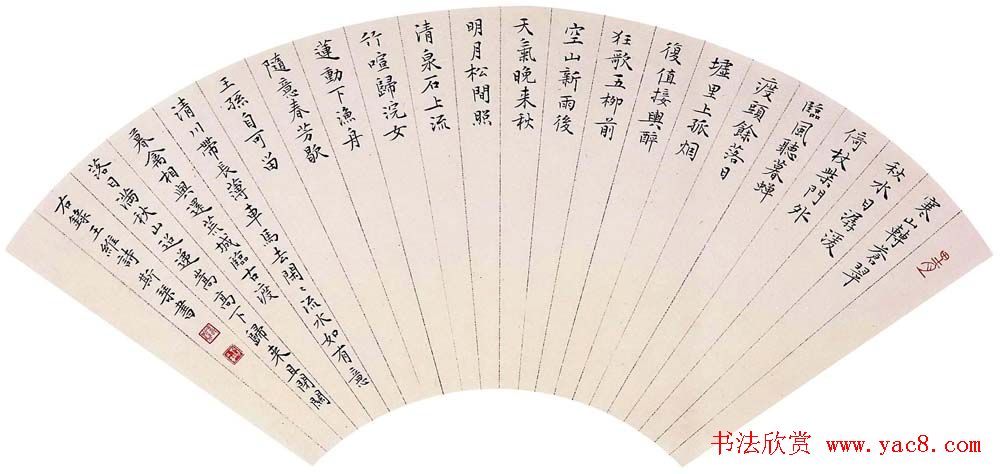 寒山轉蒼翠
秋水日潺湲
倚杖柴門外
臨風聽暮蟬
渡頭餘落日
墟里上孤烟
復值接輿醉
狂歌五柳前
空山新雨後
天氣晚来秋
明月松間照
清泉石上流
竹喧歸浣女
蓮動下漁舟
隨意春芳歇
王孫自可留
清川帶長薄車馬去閑〻流水如有意
暮禽相與還荒城臨古渡
落日滿秋山迢遞嵩高下歸来且閉關
右錄王維詩斯琹書
书法欣赏 www.yac8.com